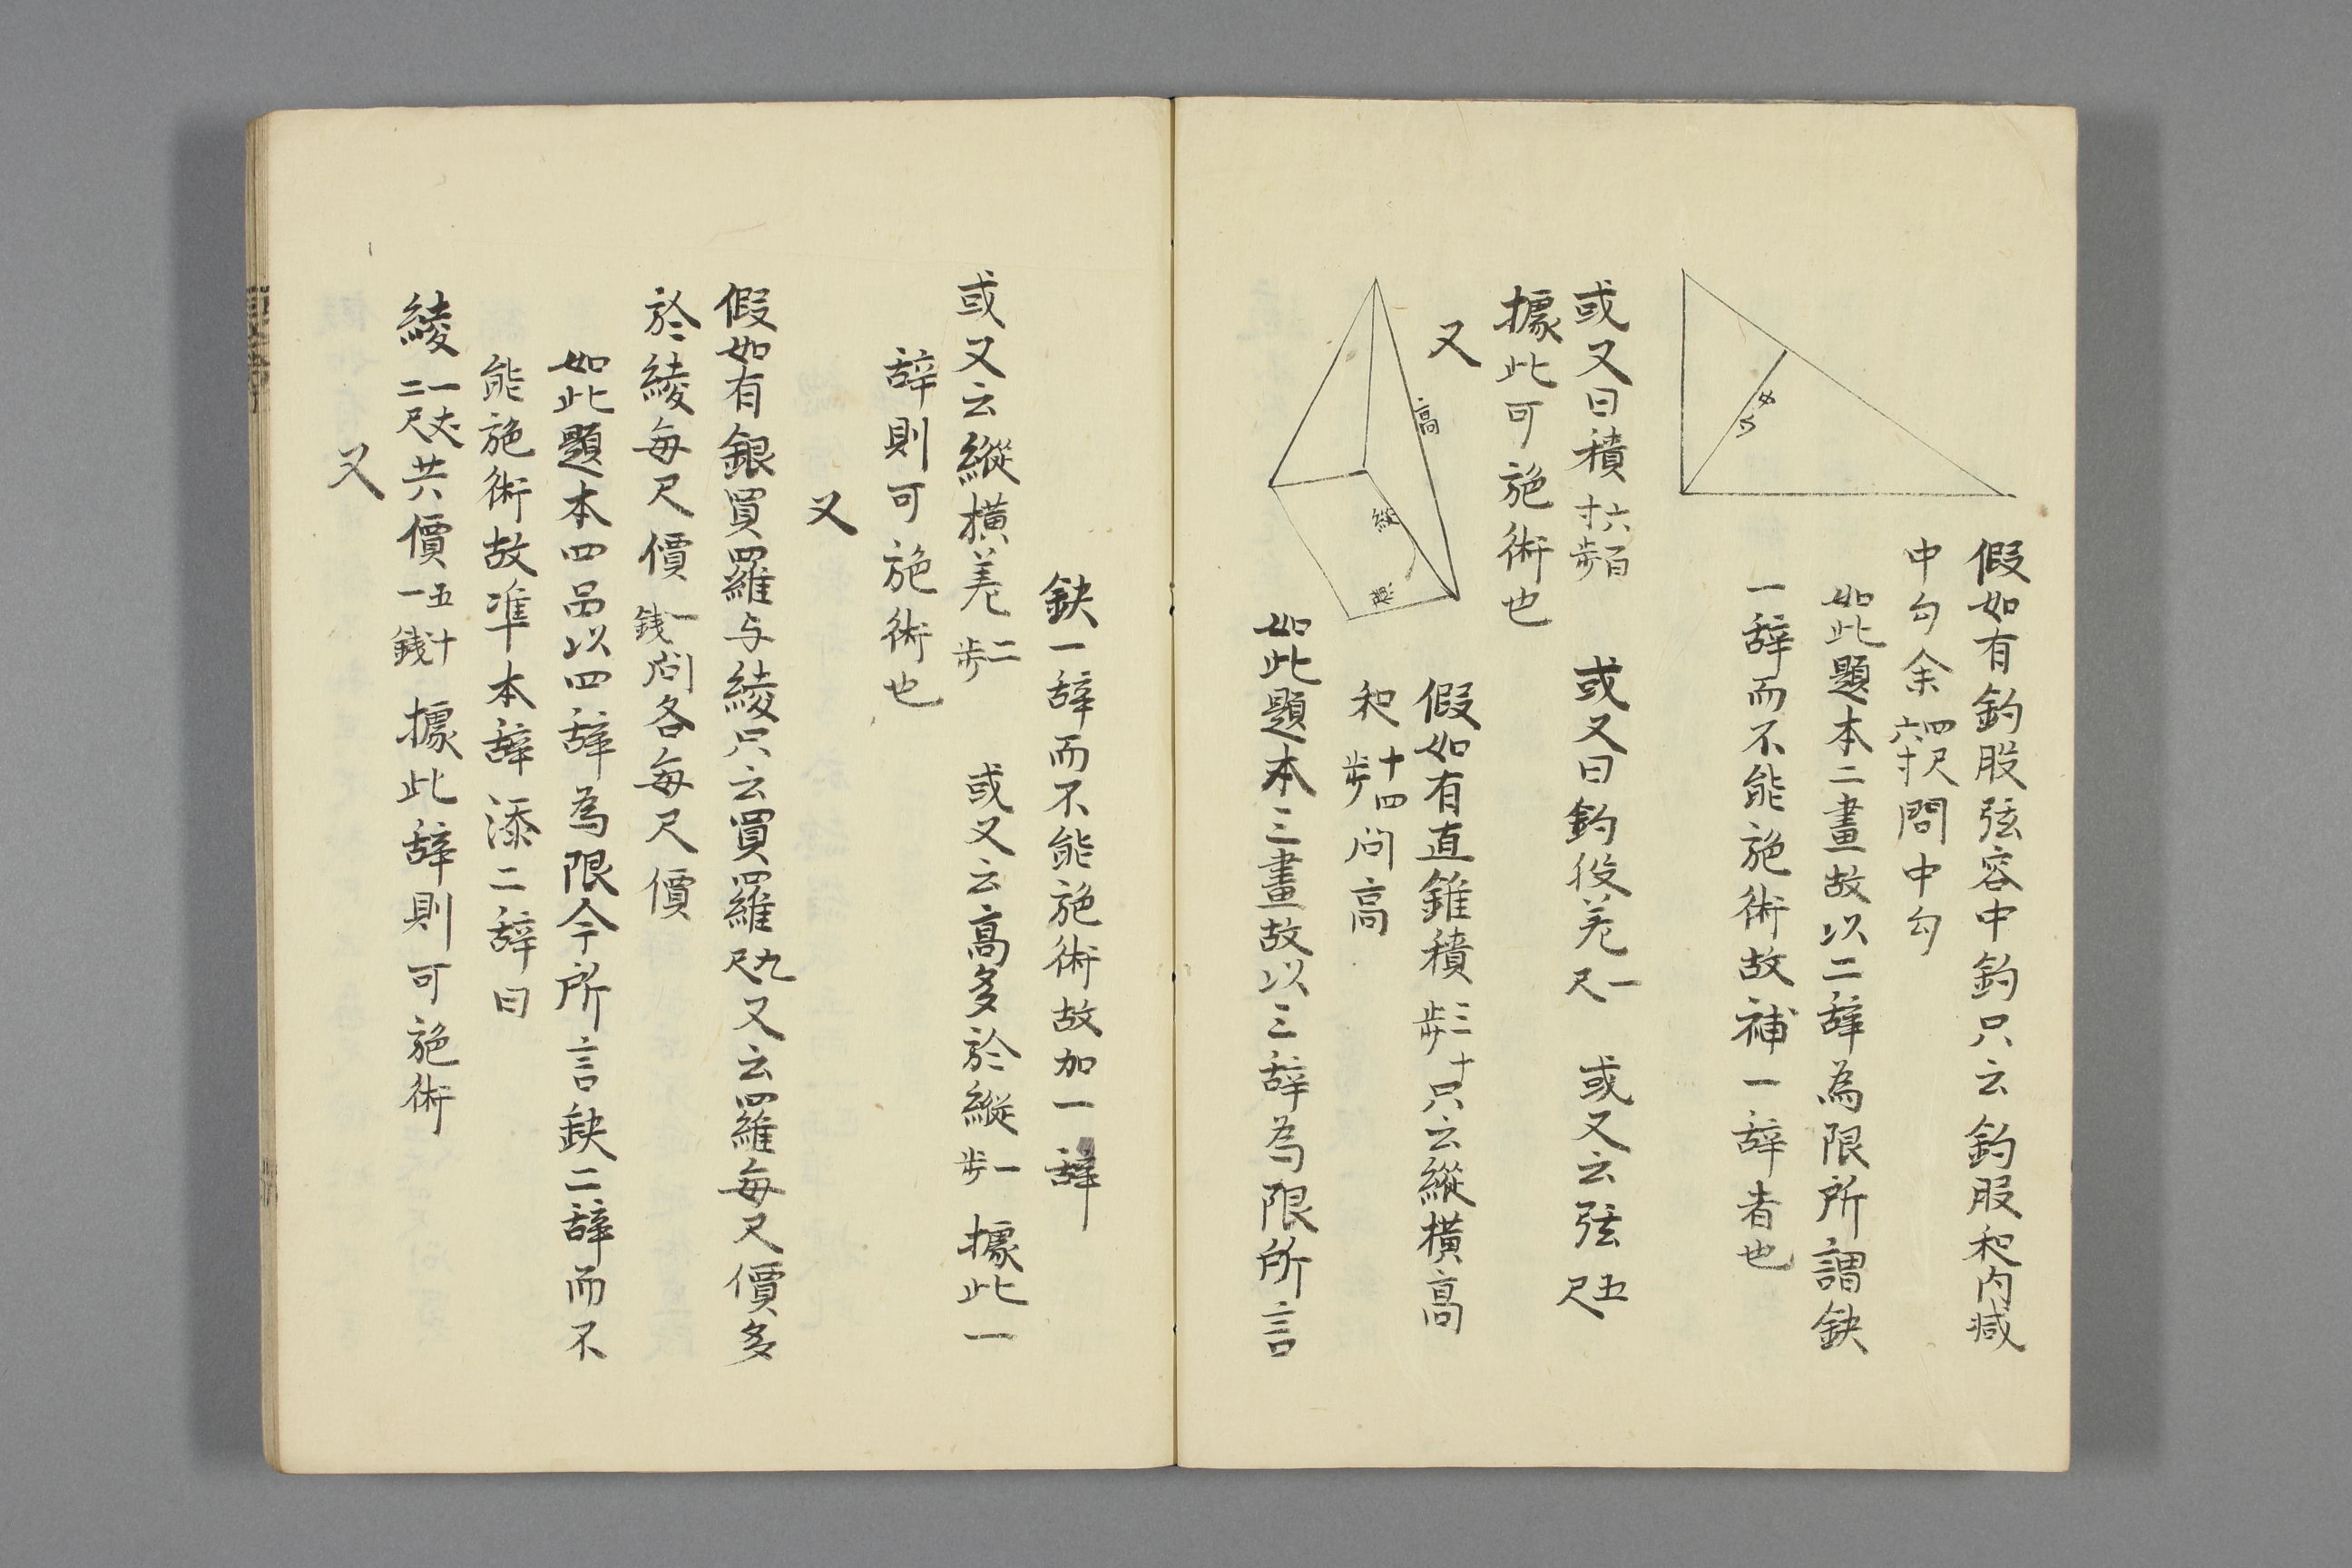 中勾
假如有釣股弦容中釣只云釣股和内减
中勾余四尺六寸問中勾
如此題本二畫故以二辞為限所謂鈌
一辞而不能施術故補一辞者也
或又曰積六百寸歩
或又曰釣役差一尺
或又云弦五尺
據此可施術也
又
高
縱
横
假如有直錐積三十歩只云縱横高
和十四歩问高
如此題本三畫故以三辞為限所言
鈌一辞而不能施術故加一辞
或又云縱横差二歩
或又云高多於縱一歩 據此一
辞則可施術也
又
假如有銀買羅与綾只云買羅九尺又云羅每尺價多
於綾每尺價一銭问各每尺價
如此題本四品以四辞為限今所言鈌二辞而不
能施術故準本辞添二辞曰
綾一丈二尺共價五十一銭 據此辞則可施術
又